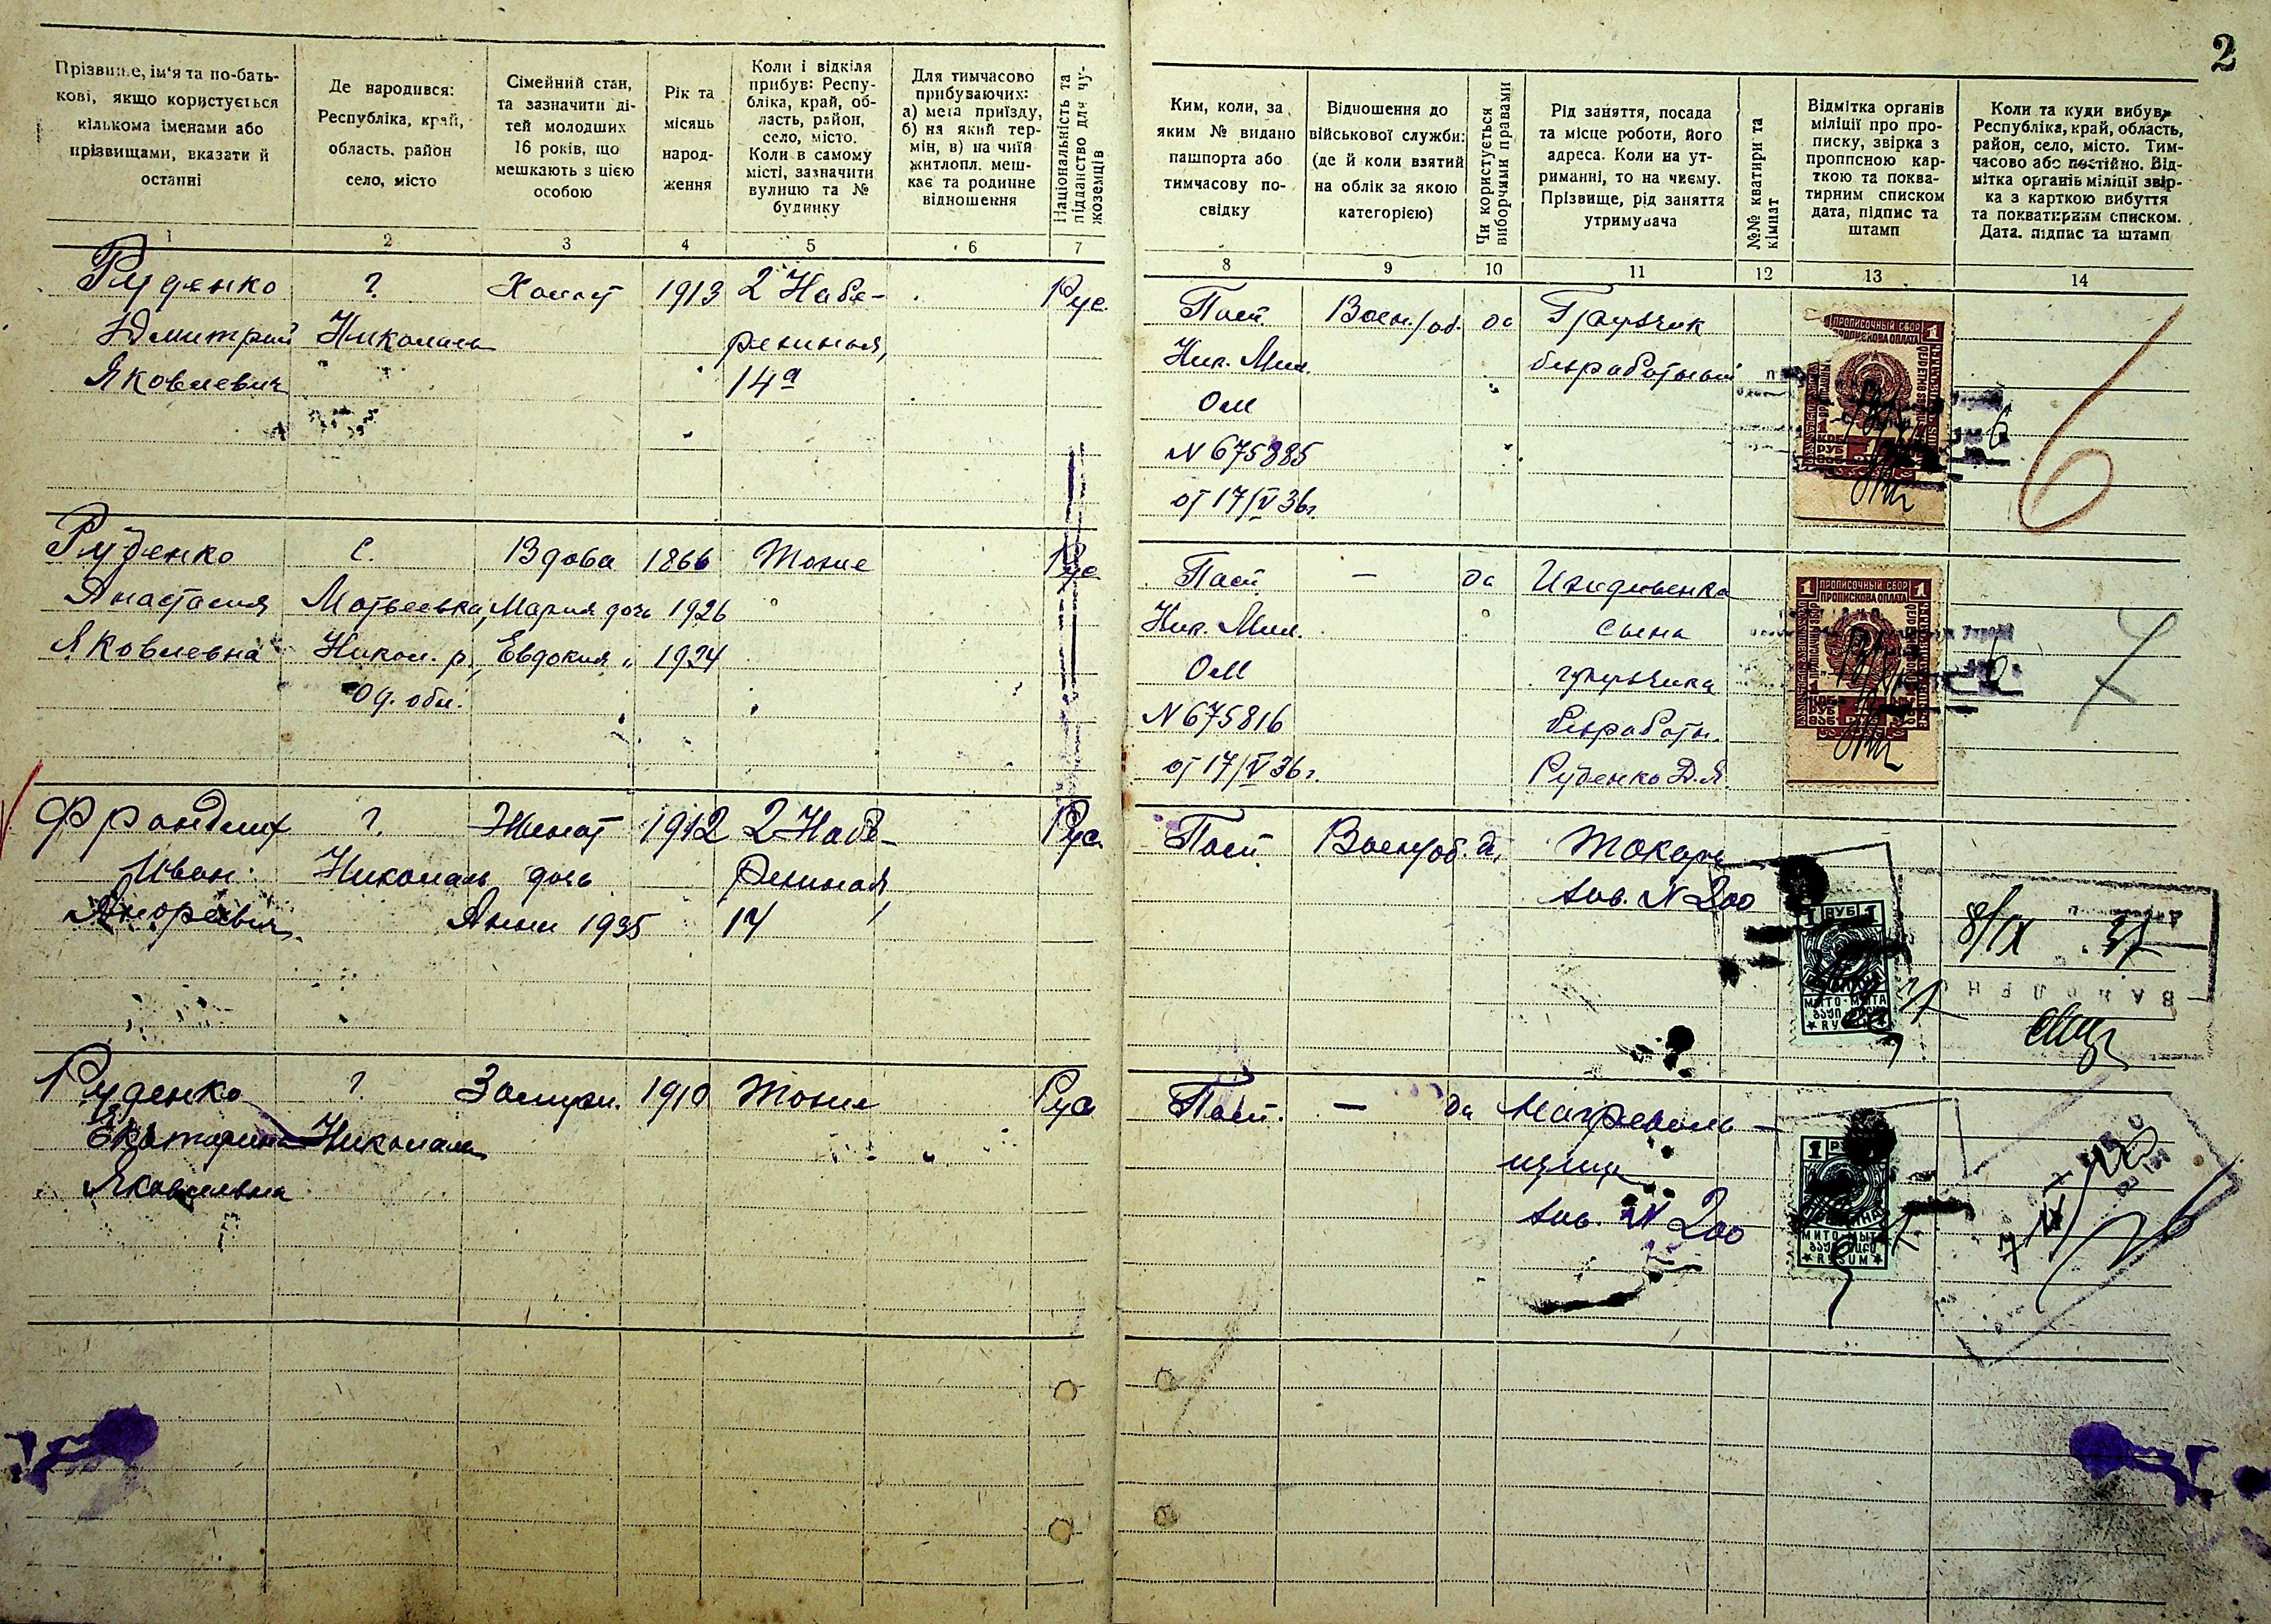 2
Прізвище, ім'я та по-бать-
кові, якщо користується
кількома іменами або
прізвищами, вказати й
останні
1
Де народився:
Республіка, край,
область, район
село, місто
2
Сімейний стан,
та зазначити ді-
тей молодших
16 років, що
мешкають з цією
особою
3
Рік та
місяць
народ-
ження
4
Коли і відкіля
прибув: Респу-
бліка, край, об-
ласть, район,
село, місто.
Коли в самому
місті, зазначити
вулицю та №
будинку
5
Для тимчасово
прибуваючих:
а) мета приїзду,
б) на який тер-
мін, в) на чиїй
житлопл. меш-
кає та родинне
відношення
6
Національність та
підданство для чу-
жоземців
7
Ким, коли, за
яким № видано
пашпорта або
тимчасову по-
свідку
8
Відношення до
військової служби:
(де й коли взятий
на облік за якою
категорією)
9
Чи користується
виборчими правами
10
Рід заняття, посада
та місце роботи, його
адреса. Коли на ут-
риманні, то на чиєму.
Прізвище, рід заняття
утримувача
11
№№ кватири та
кімнат
12
Відмітка органів
міліції про про-
писку, звірка з
пропускною кар-
ткою та поква-
тирним списком
дата, підпис та
штамп
13
Коли та куди вибув,
Республіка, край, область,
район, село, місто. Тим-
часово або постійно. Від-
мітка органів міліції звір-
ка з карткою вибуття
та покватирним списком.
Дата, підпис та штамп
14
Руденко
Дмитрий
Яковлевич
г.
Николаев
Холост
1913
2 Набе-
режная,
14а
Рус.
Пасп.
Ник. Мил.
ОМ
N 675885
от 17/V 36г.
Военн/об.
да
Грузчик
безработный
1 ПРОПИСОЧНЫЙ СБОР 1
ПРОПИСКОВА ОПЛАТА
6
Руденко
Анастасия
Яковлевна
С.
Матвеевка,
Никол. р.,
Од. обл.
Вдова
Мария дочь 1926
Евдокия " 1924
1866
Тоже
Рус
Пасп.
Ник. Мил.
ОМ
N 675816
от 17/V 36г.
—
да
Иждивенка
сына
грузчика
безработн.
Руденко Д.Я.
1 ПРОПИСОЧНЫЙ СБОР 1
ПРОПИСКОВА ОПЛАТА
7
Иван
г.
Николаев
Женат
дочь
Анна 1935
1912
2 Набе-
режная,
14
Рус
Пасп.
Военноб.
да
Токарь
зав. N 200
1 РУБ 1
МИТО-МЫТА
8/IX 37
Руденко
Екатерина
Яковлевна
г.
Николаев
Замужн.
1910
Тоже
Рус
Пасп.
—
да
зав. N 200
МИТО-МЫТА